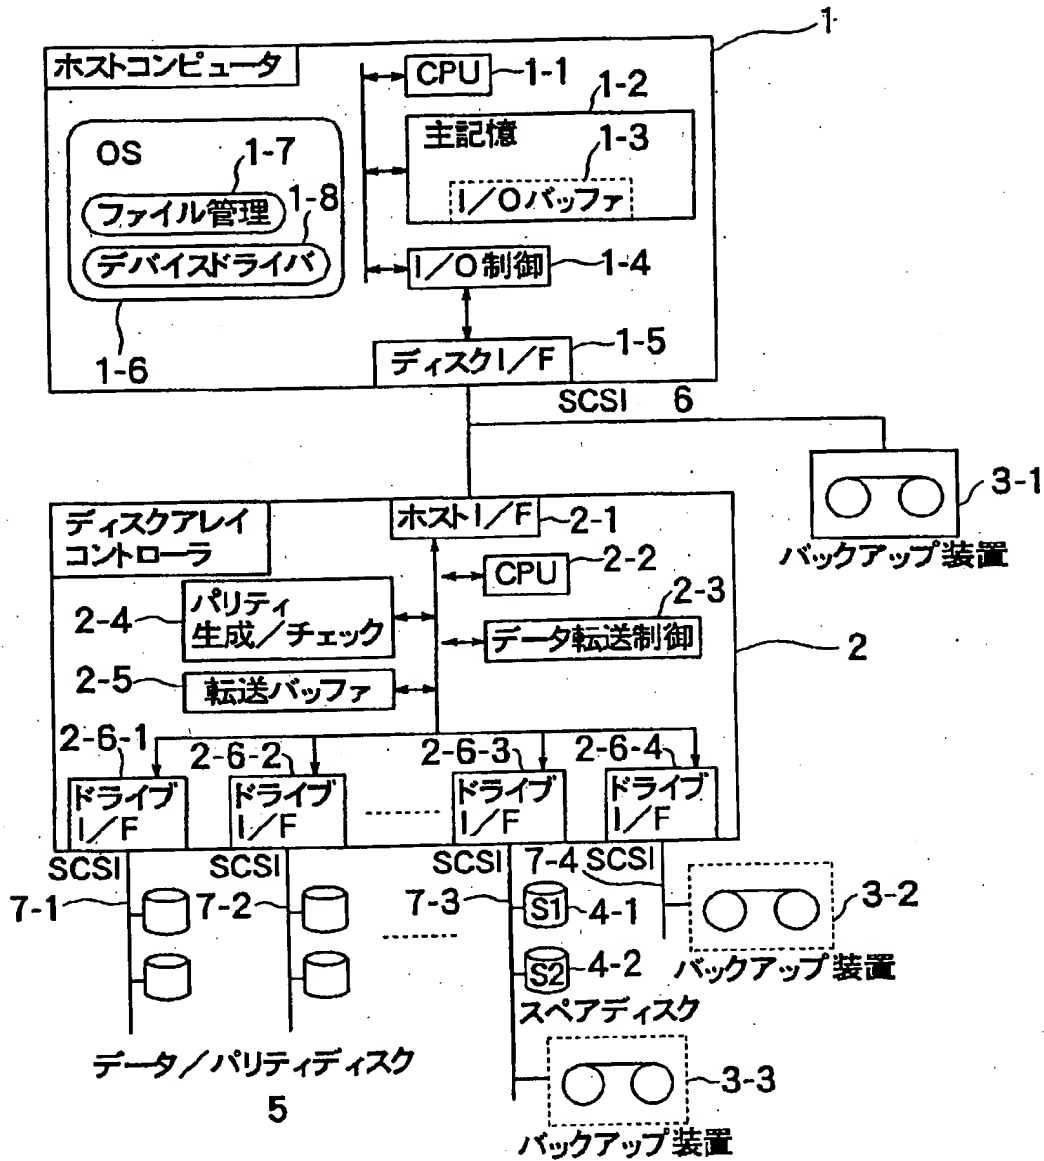 1
ホストコンピュータ
CPU
1-1
1-2
主記憶
1-3
I/Oバッファ
OS
1-7
ファイル管理
1-8
デバイスドライバ
1-6
I/O制御
1-4
ディスクI/F
1-5
SCSI 6
3-1
バックアップ装置
ディスクアレイ
コントローラ
ホストI/F
2-1
CPU
2-2
2-3
2-4
パリティ
生成/チェック
データ転送制御
2
2-5
転送バッファ
2-6-1
2-6-2
2-6-3
2-6-4
ドライブ
I/F
ドライブ
I/F
ドライブ
I/F
ドライブ
I/F
SCSI
SCSI
SCSI
7-4
SCSI
7-1
7-2
7-3
S1
4-1
3-2
S2
4-2
バックアップ装置
スペアディスク
データ/パリティディスク
5
3-3
バックアップ装置